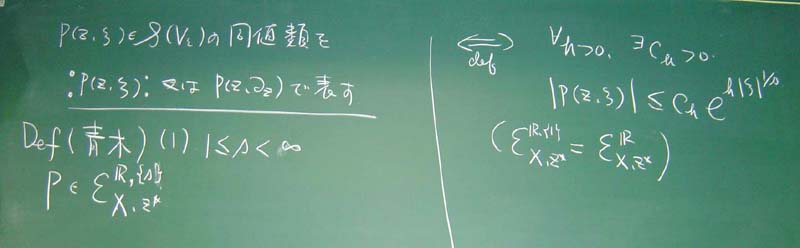 P(z,ξ)∈𝒮(V_i)の同値類を
:P(z,ξ):又は P(z,∂_z)で表す
Def(青木) (1) 1≤s<∞
P∈ℰ^{ℝ,{s}}_{X,z*}
⟺def ∀h>0, ∃C_h>0.
|P(z,ξ)| ≤ C_h e^{h|ξ|^{1/s}}
(ℰ^{ℝ,{1}}_{X,z*} = ℰ^{ℝ}_{X,z*})